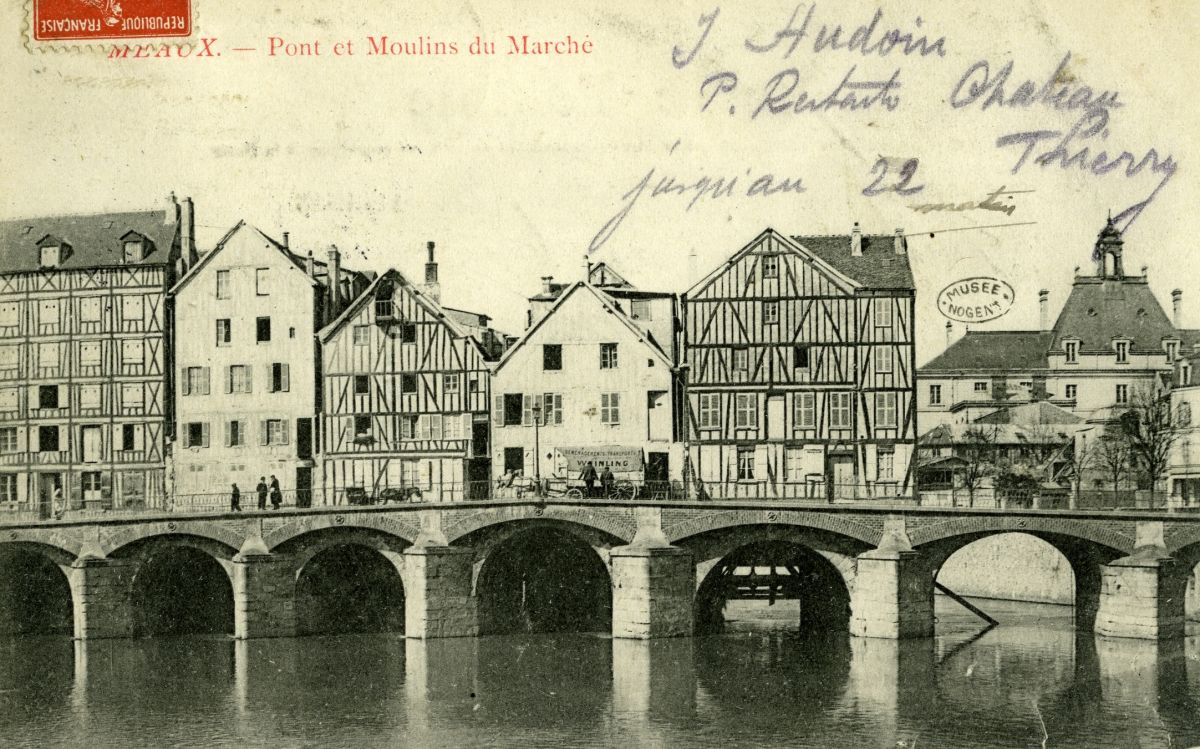 REPUBLIQUE FRANÇAISE
MEAUX. — Pont et Moulins du Marché
J Audoin
P. Restante Chateau
Thierry
jusqu'au 22
matin
MUSÉE
NOGENT
DEMENAGEMENTS & TRANSPORTS
WEINLING